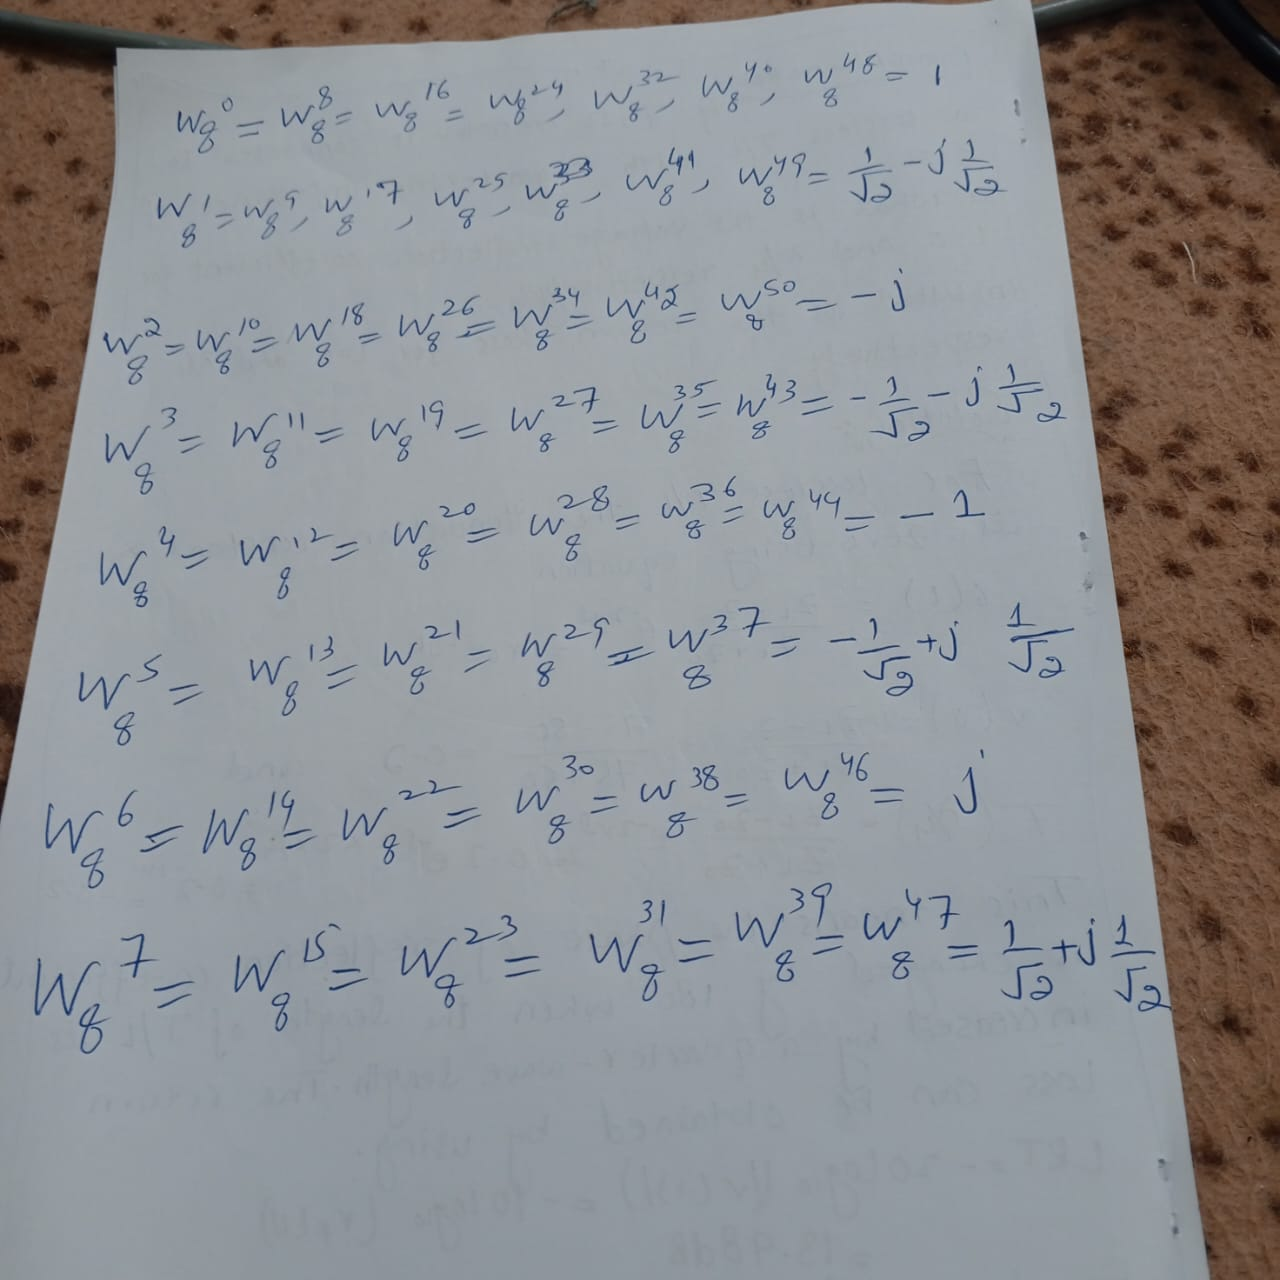 W₈⁰ = W₈⁸ = W₈¹⁶ = W₈²⁴, W₈³², W₈⁴⁰, W₈⁴⁸ = 1
W₈¹ = W₈⁹, W₈¹⁷, W₈²⁵, W₈³³, W₈⁴¹, W₈⁴⁹ = 1/√2 - j 1/√2
W₈² = W₈¹⁰ = W₈¹⁸ = W₈²⁶ = W₈³⁴ = W₈⁴² = W₈⁵⁰ = -j
W₈³ = W₈¹¹ = W₈¹⁹ = W₈²⁷ = W₈³⁵ = W₈⁴³ = -1/√2 - j 1/√2
W₈⁴ = W₈¹² = W₈²⁰ = W₈²⁸ = W₈³⁶ = W₈⁴⁴ = -1
W₈⁵ = W₈¹³ = W₈²¹ = W₈²⁹ = W₈³⁷ = -1/√2 + j 1/√2
W₈⁶ = W₈¹⁴ = W₈²² = W₈³⁰ = W₈³⁸ = W₈⁴⁶ = j
W₈⁷ = W₈¹⁵ = W₈²³ = W₈³¹ = W₈³⁹ = W₈⁴⁷ = 1/√2 + j 1/√2